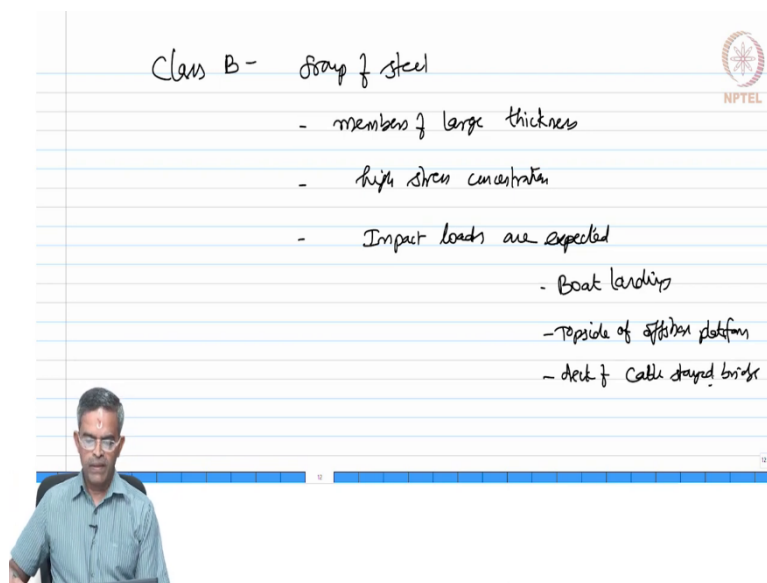 Class B - Group of steel
NPTEL
- members of large thickness
- high stress concentration
- Impact loads are expected
- Boat landings
- Topside of offshore platform
- deck of Cable stayed bridge
12
12